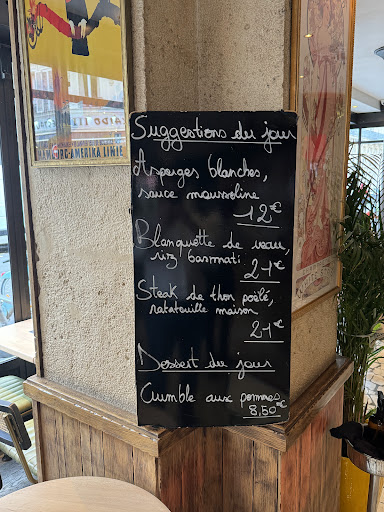 Suggestions du jour
Asperges blanches,
sauce mousseline
12€
Blanquette de veau,
riz basmati
21€
Steak de thon poêlé,
ratatouille maison
21€
Dessert du jour
Crumble aux pommes
8,50€
-AMERIKA LINIE